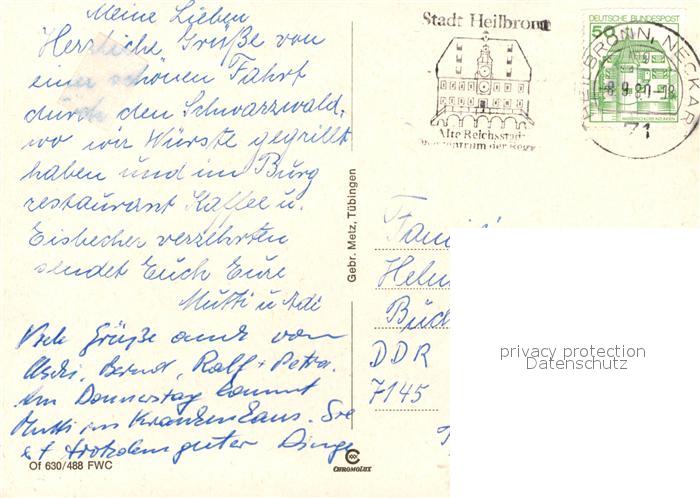 Meine Lieben
Herzliche Grüße von
einer schönen Fahrt
durch den Schwarzwald,
wo wir Würste gegrillt
haben und im Burg
restaurant Kaffee u.
Eisbecher verzehrten
sendet Euch Eure
Mutti u Adi
Viele Grüße auch von
Uschi, Bernd, Ralf + Petra.
Am Donnerstag kommt
Mutti ins Krankenhaus. Sie
ist trotzdem guter Dinge
Of 630/488 FWC
Gebr. Metz, Tübingen
CHROMOLUX
Stadt Heilbronn
Alte Reichsstadt
zentrum der Regi
DEUTSCHE BUNDESPOST
50
HEILBRONN, NECKAR
-8.9.80-18
71
Famil
Helm
Büd
DDR
7145
privacy protection
Datenschutz